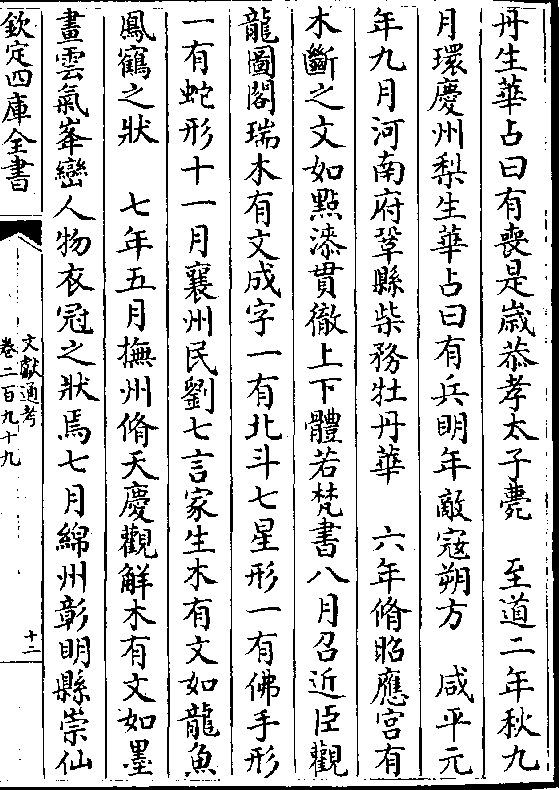 丹生華占曰有喪是歲恭孝太子薨　至道二年秋九
月環慶州梨生華占曰有兵明年敵寇朔方　咸平元
年九月河南府鞏縣柴務牡丹華　六年脩昭應宮有
木斷之文如點漆貫徹上下體若梵書八月召近臣觀
龍圖閣瑞木有文成字一有北斗七星形一有佛手形
一有蛇形十一月襄州民劉七言家生木有文如龍魚
鳳鶴之狀　七年五月撫州脩天慶觀解木有文如墨
畫雲氣峯巒人物衣冠之狀焉七月綿州彰明縣崇仙
欽定四庫全書
文獻通考
卷二百九十九
十二